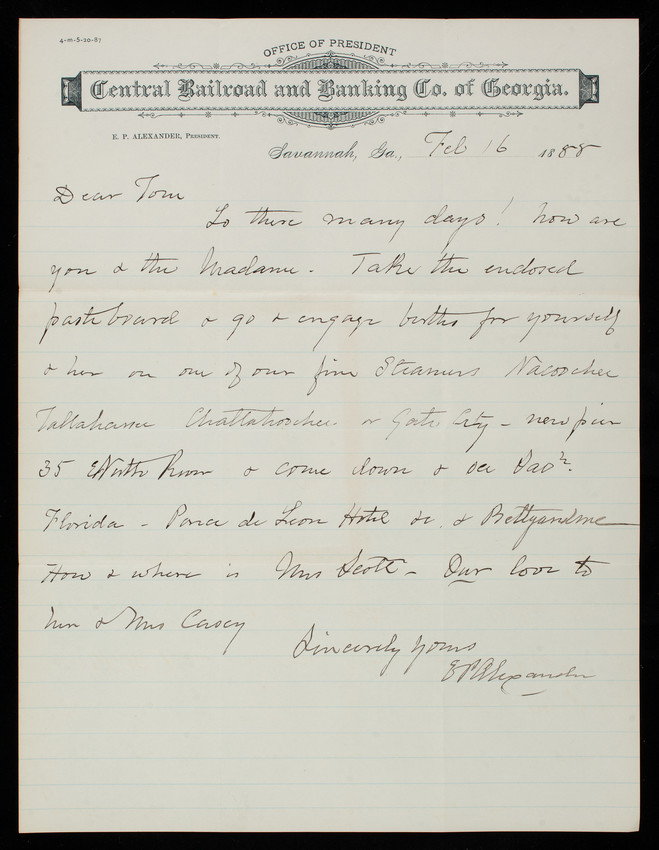 4-m-5-20-87
OFFICE OF PRESIDENT
Central Railroad and Banking Co. of Georgia.
E. P. ALEXANDER, PRESIDENT.
Savannah, Ga., Feb 16 1888
Dear Tom
Lo these many days! How are
you & the Madame. Take the enclosed
pasteboard & go & engage births for yourself
& her on one of our fine Steamers Nacoochee
Tallahassee Chattahoochee or Gate City - new pier
35 North River & come down & see Savh.
Florida - Ponce de Leon Hotel &c. & Bettyandme
How & where is Mrs Scott - Our love to
her & Mrs Casey
Sincerely yours
E P Alexander